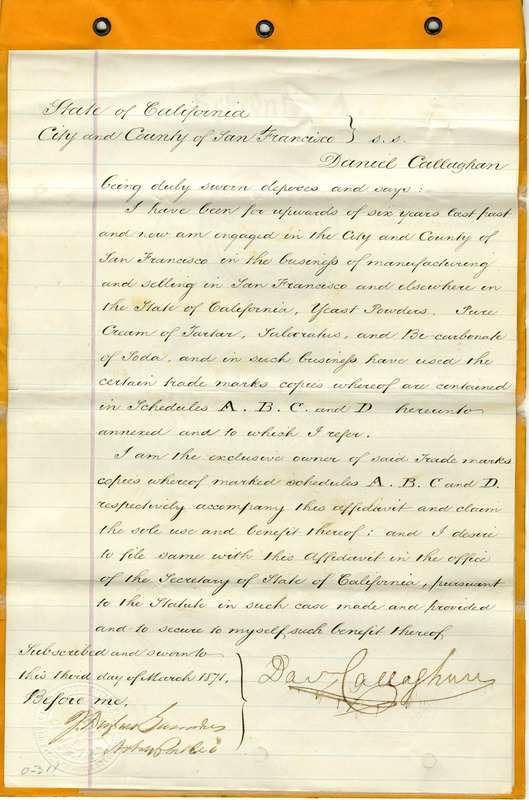 State of California
City and County of San Francisco } s.s.
Daniel Callaghan
being duly sworn deposes and says:
I have been for upwards of six years last past
and now am engaged in the City and County of
San Francisco in the business of manufacturing
and selling in San Francisco and elsewhere in
the State of California, Yeast Powders. Pure
Cream of Tartar, Saleratus, and Bi-carbonate
of Soda, and in such business have used the
certain trade marks copies whereof are contained
in Schedules A. B. C. and D hereunto
annexed and to which I refer.
I am the exclusive owner of said Trade marks
copies whereof marked schedules A. B. C and D.
respectively accompany this affidavit and claim
the sole use and benefit thereof: and I desire
to file same with this affidavit in the office
of the Secretary of State of California, pursuant
to the Statute in such case made and provided
and to secure to myself such benefit thereof
Subscribed and sworn to
this third day of March 1871,
Before me,
Notary Public
Danl Callaghan
0-311